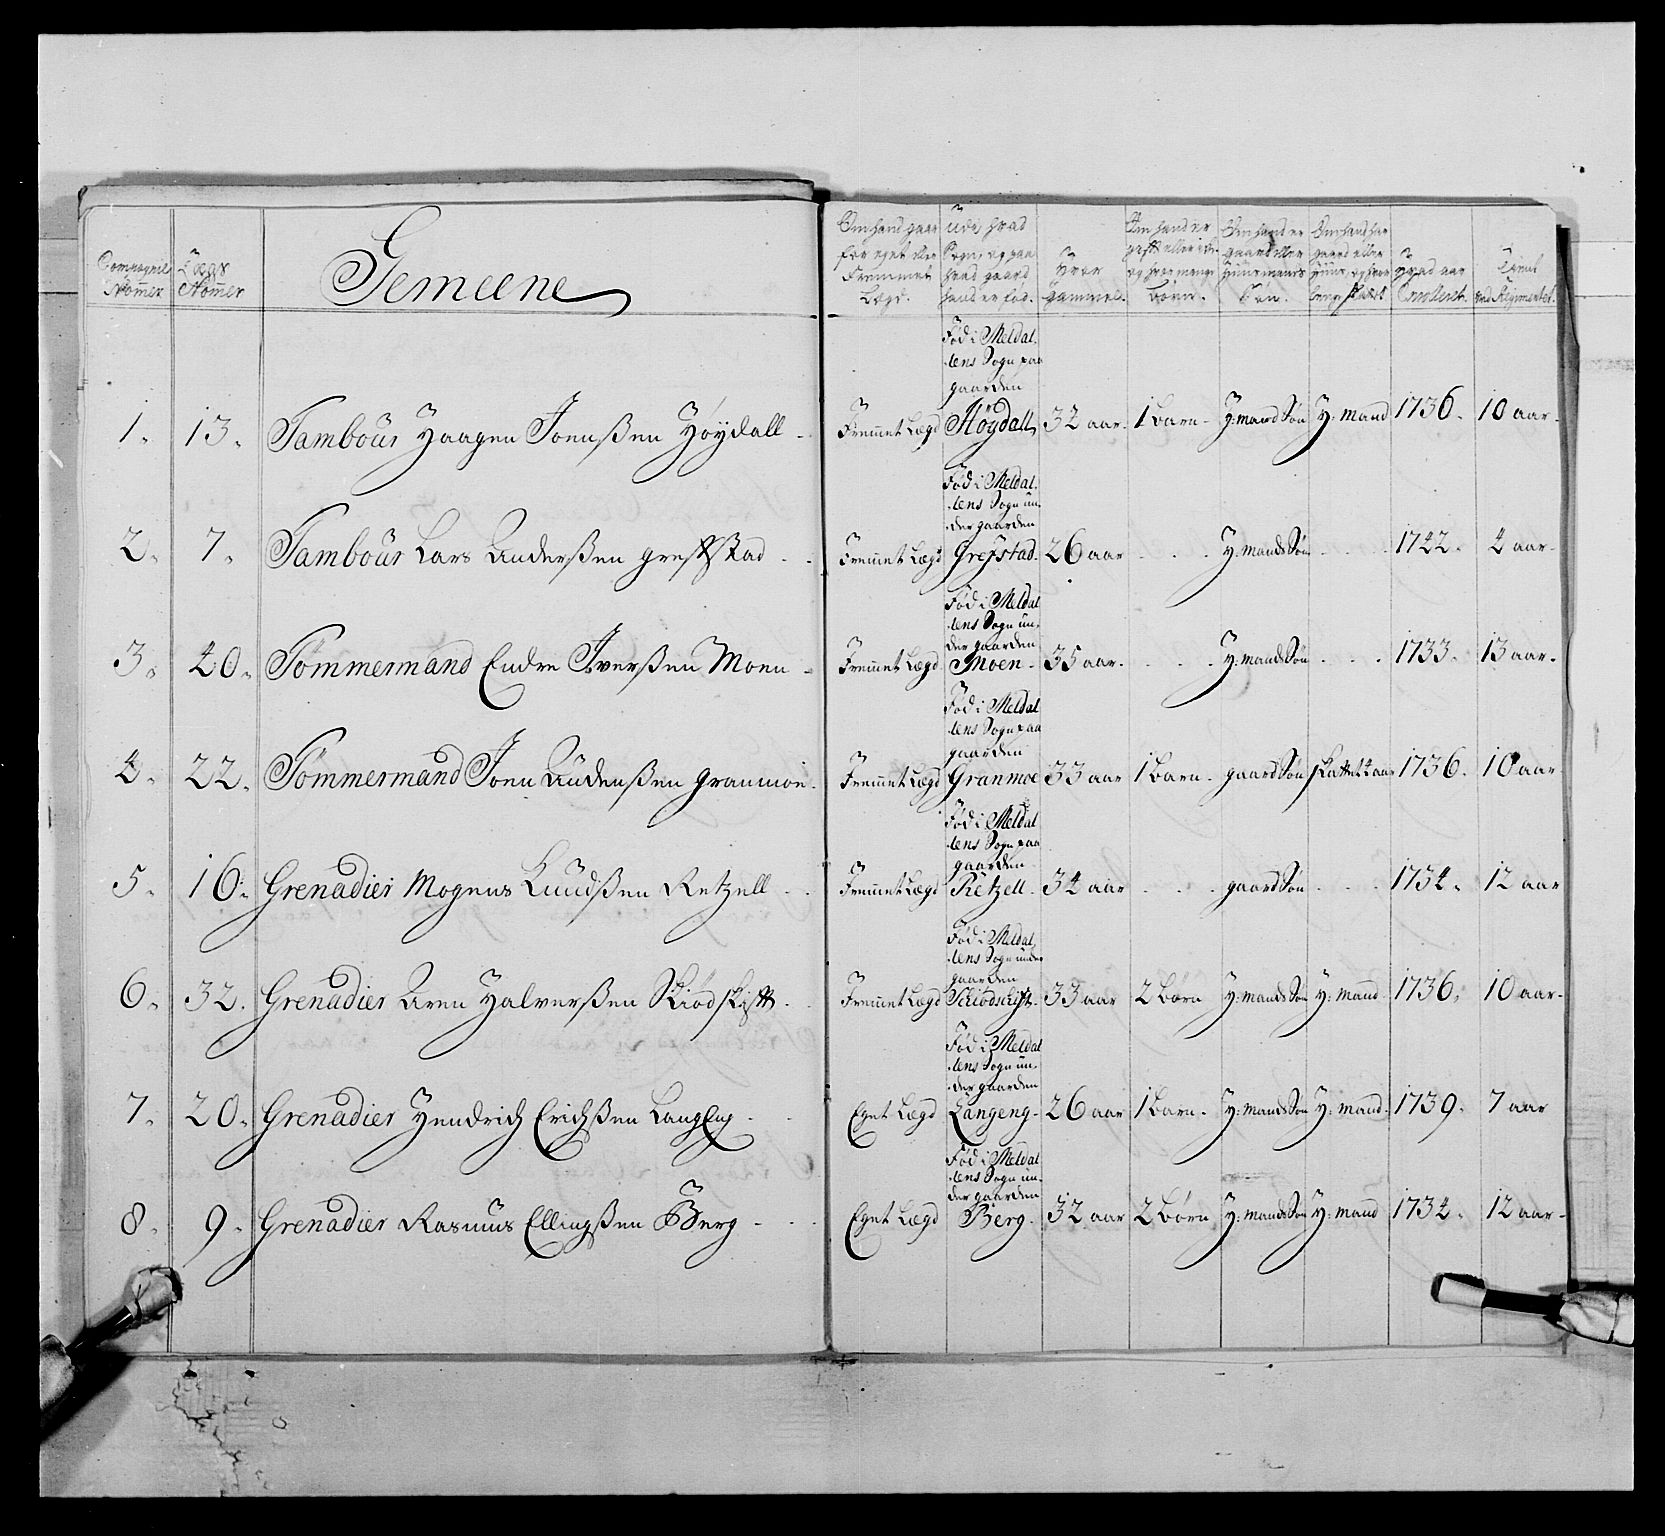 Compagnie Nommer
Lægs Nommer
Gemeene
Om hand gaar for eget eller Fremmet Lægd.
Udi hvad Sogn, og paa hvad gaard hand er fød.
Hvor gammel.
Om hand er gift eller icke og hvor mange Børn.
Om hand er gaard eller Huusmands Søn.
Om hand har gaard eller Huus, og hvor
Hvad aar Enrolleret.
Tient ved Regimentet.
1. 13. Tambour Haagen Joenßen Høydall - Fremmet Lægd Fød i Meldallens Sogn paa gaarden Høgdall, 32 aar. 1 Barn - H: mand Søn H: mand 1736. 10 aar.
2. 7. Tambour Lars Anderßen greffstad - Fremmet Lægd Fød i Meldallens Sogn under gaarden Grefstad. 26 aar - - H: mands Søn - - 1742. 4 aar.
3. 40. Tømmermand Endre Iverßen Moen - Fremmet Lægd Fød i Meldallens Sogn under gaarden Moen - 35 aar. - - H: mands Søn - - 1733. 13 aar.
4. 22. Tømmermand Joen Audenßen granmoe. Fremmet Lægd Fød i Meldallens Sogn paa gaarden Granmoe 33 aar 1 Barn - gaard Søn skattet 4 aar 1736. 10 aar
5. 16. Grenadier Mogens Knudßen Retzell - Fremmet Lægd Fød i Meldallens Sogn paa gaarden Retzell. 34 aar - - gaard Søn - - 1734. 12 aar
6. 32. Grenadier Aren Halverßen Skiødskift. Fremmet Lægd Fød i Meldallens Sogn under gaarden Schiødschift. 33 aar 2 Børn H: mands Søn H: mand 1736. 10 aar.
7. 20. Grenadier Hendrich Erichßen LangEng - Eget Lægd Fød i Meldallens Sogn under gaarden Langeng - 26 aar 1 Barn. H: mands Søn H: mand. 1739. 7 aar
8. 9. Grenadier Rasmus Ellingßen Berg - Eget Lægd Fød i Meldallens Sogn under gaarden Berg. 32 aar 2 Børn H: mands Søn H: mand 1734. 12 aar.